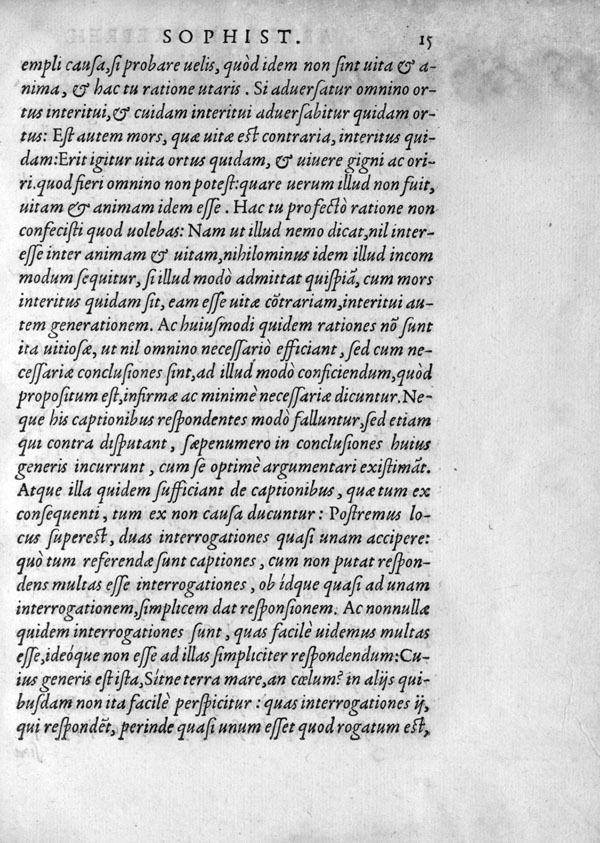 SOPHIST. 15
empli causa, si probare uelis, quòd idem non sint uita & a-
nima, & hac tu ratione utaris. Si aduersatur omnino or-
tus interitui, & cuidam interitui aduersabitur quidam or-
tus: Est autem mors, quæ uitæ est contraria, interitus qui-
dam: Erit igitur uita ortus quidam, & uiuere gigni ac ori-
ri. quod fieri omnino non potest: quare uerum illud non fuit,
uitam & animam idem esse. Hac tu profectò ratione non
confecisti quod uolebas: Nam ut illud nemo dicat, nil inter-
esse inter animam & uitam, nihilominus idem illud incom
modum sequitur, si illud modò admittat quispiã, cum mors
interitus quidam sit, eam esse uitæ cõtrariam, interitui au-
tem generationem. Ac huiusmodi quidem rationes nõ sunt
ita uitiosæ, ut nil omnino necessariò efficiant, sed cum ne-
cessariæ conclusiones sint, ad illud modò conficiendum, quòd
propositum est, infirmæ ac minimè necessariæ dicuntur. Ne-
que his captionibus respondentes modò falluntur, sed etiam
qui contra disputant, sæpenumero in conclusiones huius
generis incurrunt, cum se optimè argumentari existimãt.
Atque illa quidem sufficiant de captionibus, quæ tum ex
consequenti, tum ex non causa ducuntur: Postremus lo-
cus superest, duas interrogationes quasi unam accipere:
quò tum referendæ sunt captiones, cum non putat respon-
dens multas esse interrogationes, ob ídque quasi ad unam
interrogationem, simplicem dat responsionem. Ac nonnullæ
quidem interrogationes sunt, quas facilè uidemus multas
esse, ideóque non esse ad illas simpliciter respondendum: Cu-
ius generis est ista, Sítne terra mare, an cœlum? in alijs qui-
busdam non ita facilè perspicitur: quas interrogationes ij,
qui respondẽt, perinde quasi unum esset quod rogatum est,